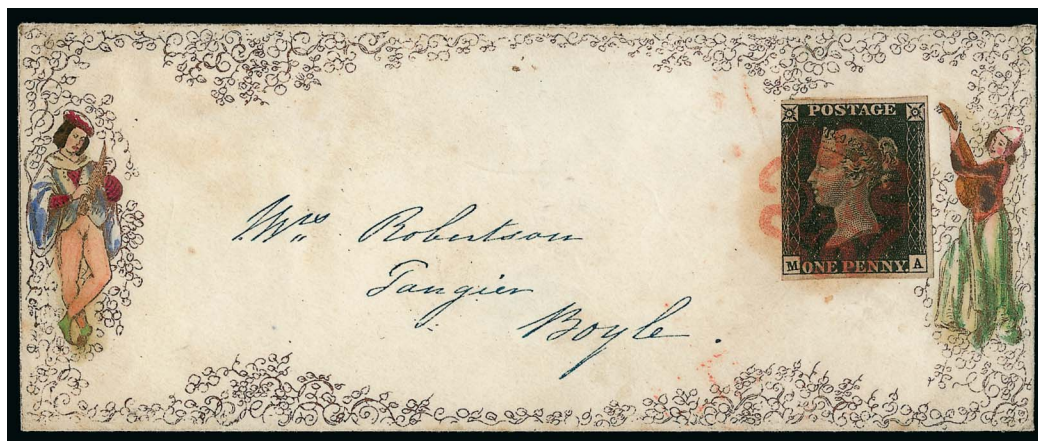 POSTAGE
M ONE PENNY. A
Mrs Robertson
Tangier
Boyle.